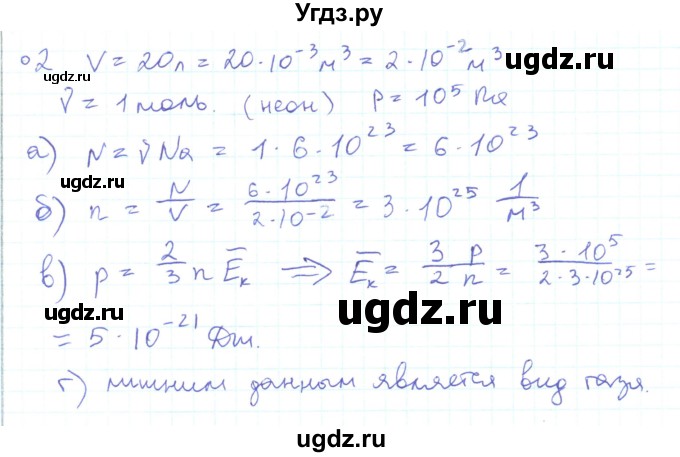 Угдз.ру
№2 V = 20л = 20·10⁻³ м³ = 2·10⁻² м³
ugdz.ru ugdz.ru
ν = 1 моль. (неон) P = 10⁵ Па
а) N = νNa = 1·6·10²³ = 6·10²³
ugdz.ru
б) n = N/V = 6·10²³/2·10⁻² = 3·10²⁵ 1/м³
в) p = 2/3 n Ēₖ ⇒ Ēₖ = 3/2 p/n = 3·10⁵/2·3·10²⁵ =
ugdz.ru ugdz.ru
= 5·10⁻²¹ Дж.
г) лишним данным является вид газа.
ugdz.ru